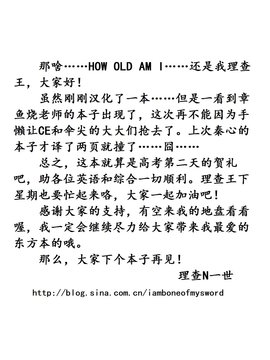 那啥……HOW OLD AM I……还是我理查
王，大家好！
虽然刚刚汉化了一本……但是一看到章
鱼烧老师的本子出现了，这次再不能因为手
懒让CE和伞尖的大大们抢去了。上次秦心的
本子才译了两页就撞了……囧……
总之，这本就算是高考第二天的贺礼
吧，助各位英语和综合一切顺利。理查王下
星期也要忙起来咯，大家一起加油吧！
感谢大家的支持，有空来我的地盘看看
喔，我一定会继续尽力给大家带来我最爱的
东方本的哦。
那么，大家下个本子再见！
理查N一世
http://blog.sina.com.cn/iamboneofmysword